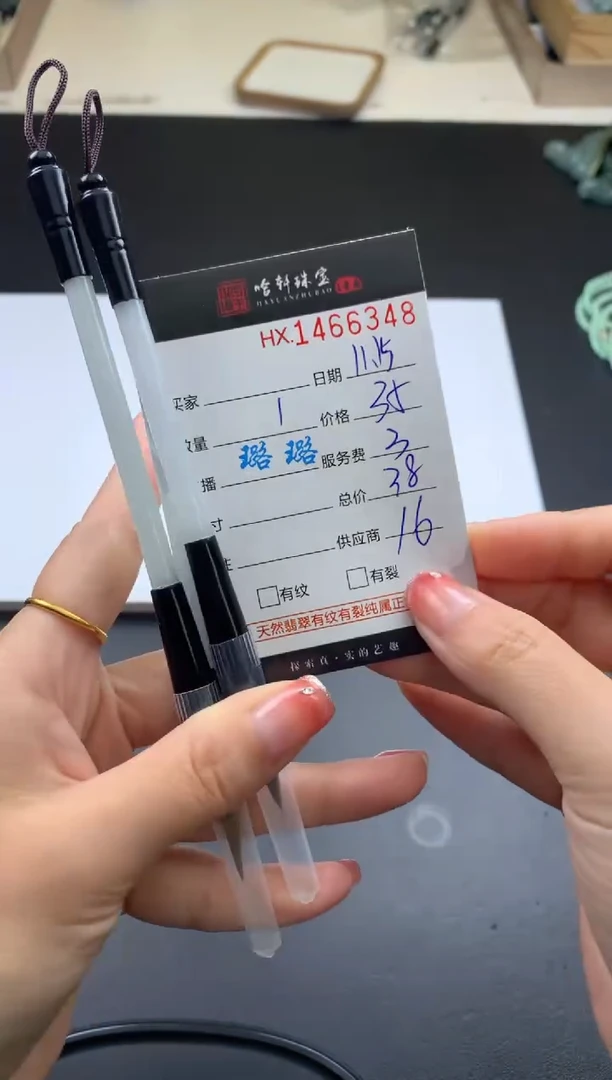 哈轩珠宝
HAXUANZHUBAO
HX.1466348
买家 日期 11.15
数量 1 价格 35
播 璐璐 服务费 3
寸 总价 38
供应商 16
□有纹 □有裂
天然翡翠有纹有裂纯属正
探索真·实的艺趣